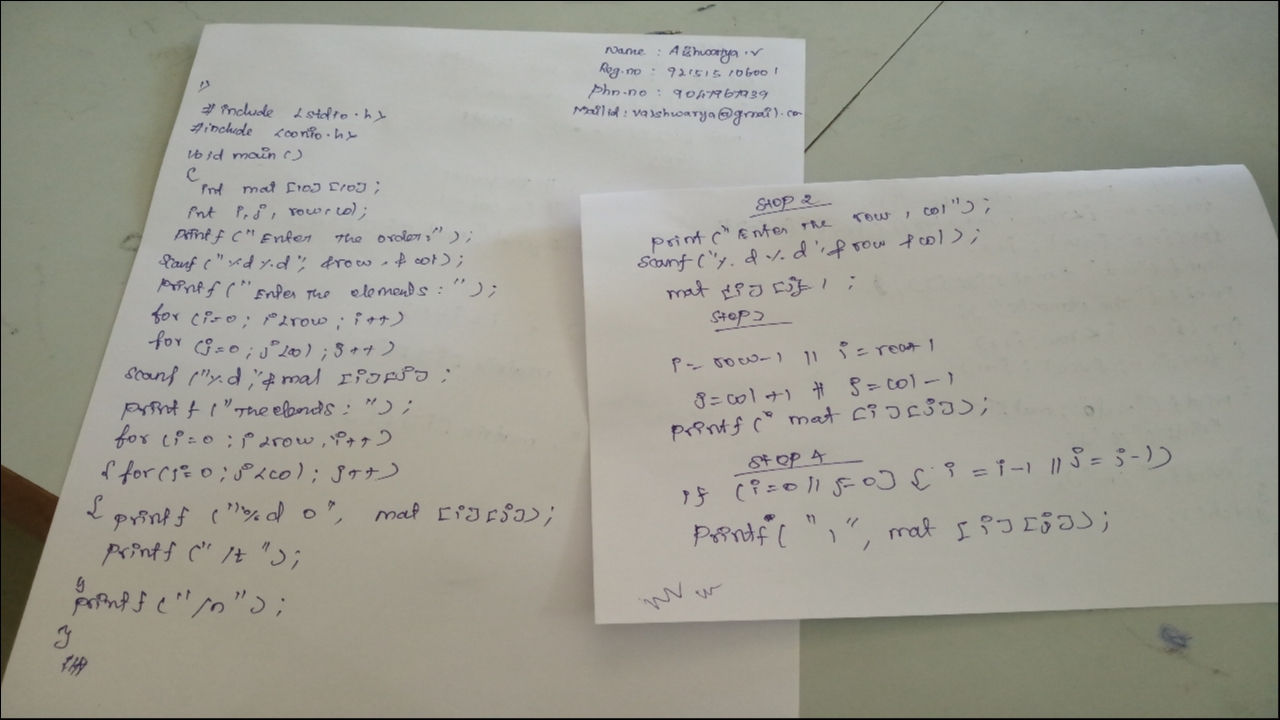 Name : Aishwarya.V
Reg.no : 921515106001
Phn.no :
Mail id : vaishwarya@gmail.co
1)
# include <stdio.h>
#include <conio.h>
Void main ()
{
int mat [10] [10] ;
int i, j, row, col;
printf (" Enter the order:" );
Scanf ("%d %d", &row, & col);
printf (" Enter the elements : " );
for (i=0; i<row ; i++)
for (j=0; j<col ; j++)
Scanf ("%d", & mat [i][j];
printf (" The elends : ");
for (i=0 ; i<row, i++)
{ for (j=0; j<col; j++)
{ printf ("%d 0", mat [i][j]);
printf (" /t ");
}
printf (" /n ");
}
Stop 2
print (" Enter the row, col ");
Scanf ("%d %d", & row & col);
mat [i] [j]=1 ;
Stop 3
i = row-1 || i = row+1
j=col+1 || j=col-1
printf (" mat [i][j]);
Stop 4
if (i=0 || j=0) { i = i-1 || j= j-1)
Printf ( " , ", mat [i][j]);